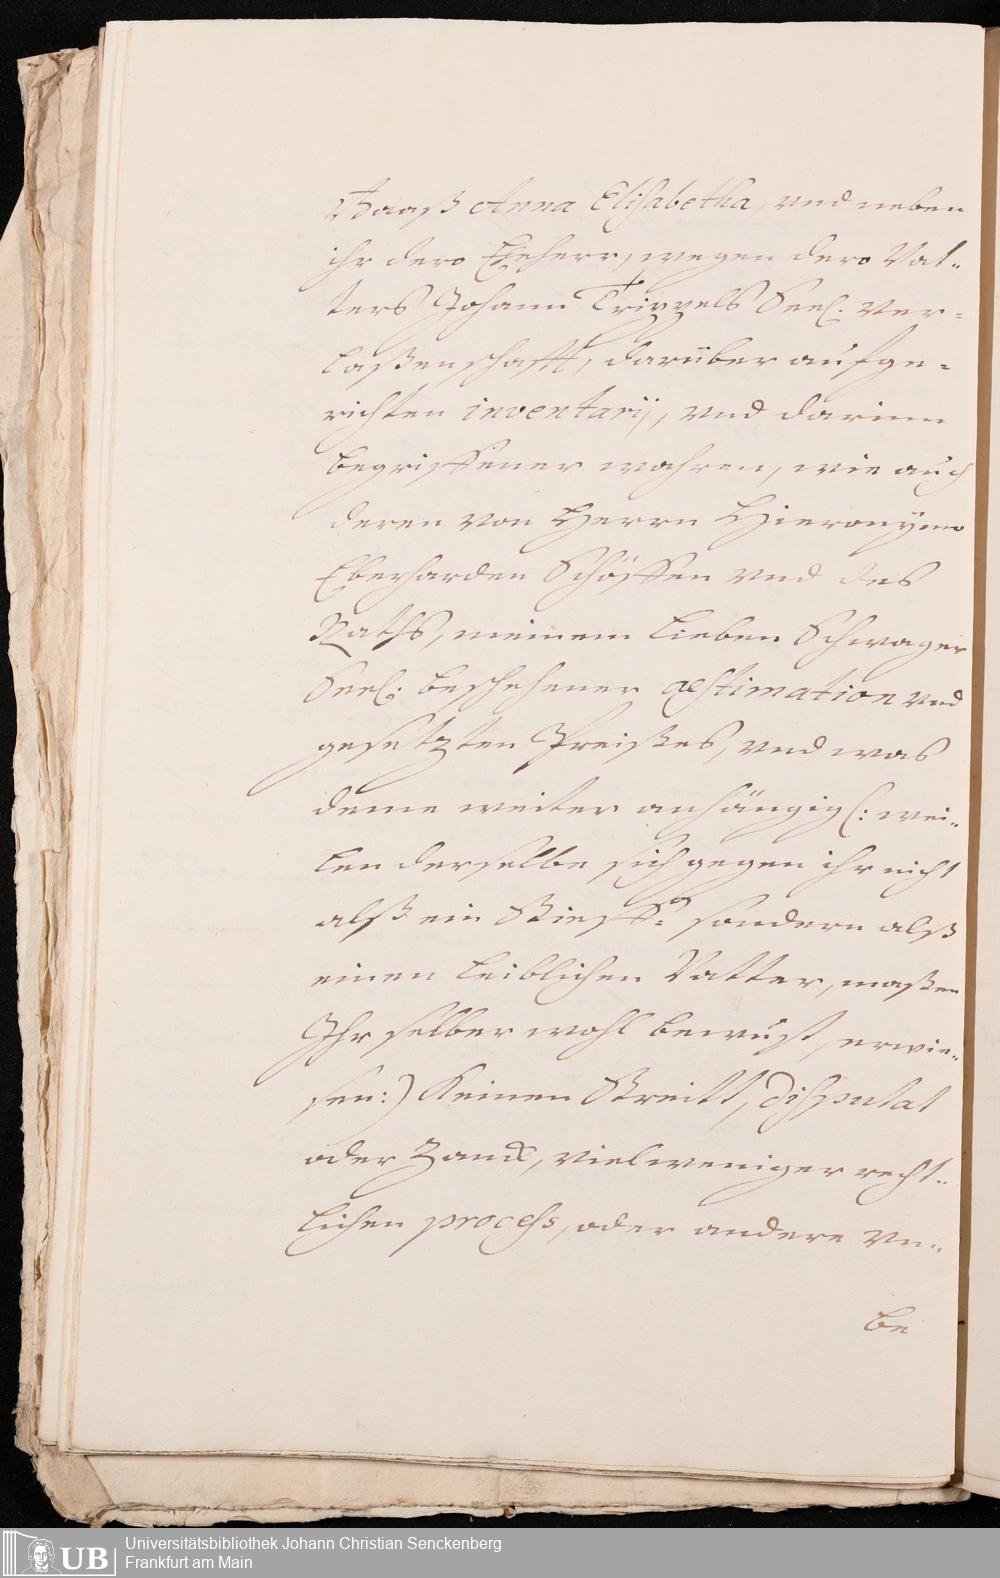 Baaß Anna Elisabetha, vnd neben
ihr dero Eheherr, wegen dero Vat„
ters Johann Trippels Seel: ver=
laßenschafft, darüber aufge=
richten inventarij, vnd darinn
begriffener wahren, wie auch
deren von Herrn Hieronÿmo
Eberharden Schöffen vnd des
Raths, meinem lieben Schwager
Seel: beschehener æstimation vnd
gesetzten Preißes, vnd was
deme weiter anhängig (: wei„
len derselbe sich gegen ihr nicht
alß ein Stieff= sondern alß
einen leiblichen Vatter, maßen
Ihr selber wohl bewust, erwie„
sen:) Keinen Streitt, disputat
oder Zanck, vielweniger recht„
lichen process, oder andere vn„
be
Universitätsbibliothek Johann Christian Senckenberg
Frankfurt am Main
UB